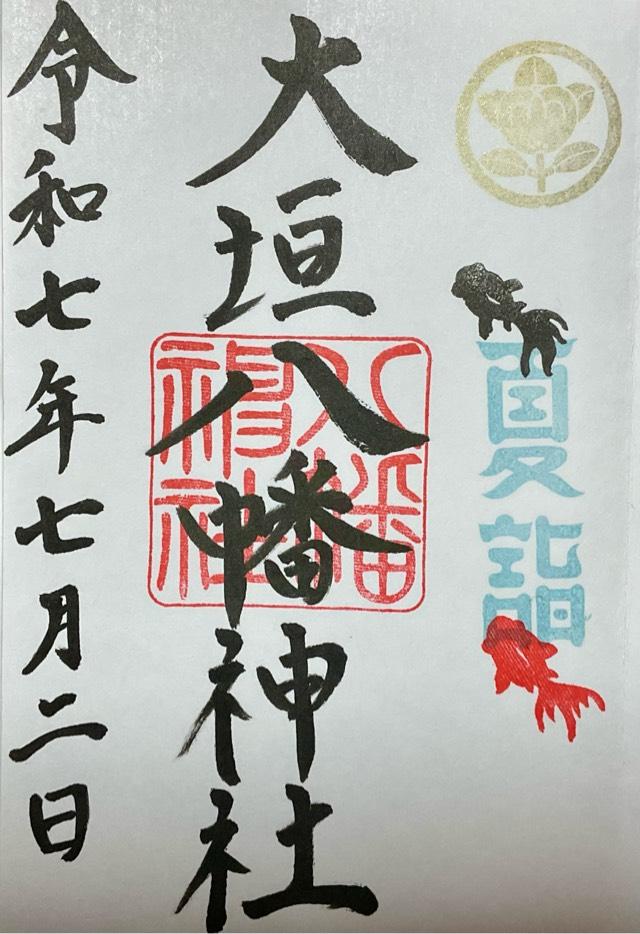 夏詣
大垣八幡神社
八幡神社
令和七年七月二日